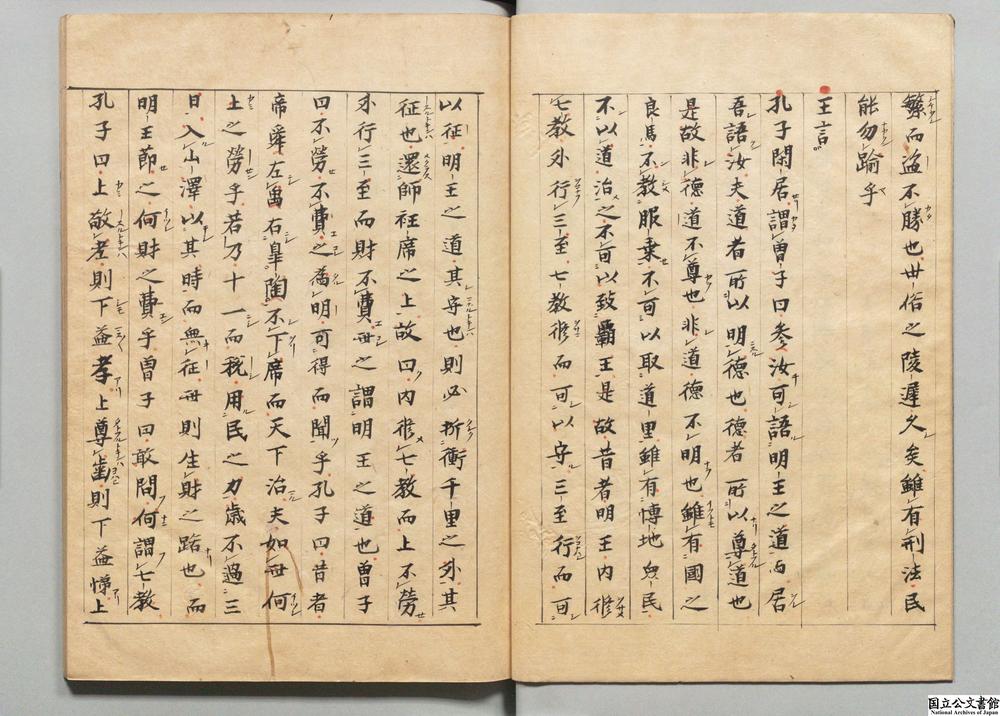 繁而盗不勝也世俗之陵遅久矣雖有刑法民
能勿踰乎
王言
孔子閑居謂曽子曰参汝可語明王之道与居
吾語汝夫道者所以明徳也徳者所以尊道也
是故非徳道不尊也非道徳不明也雖有國之
良馬不教服乗不可以取道里雖有博地衆民
不以道治之不可以致覇王是故昔者明王内修
七教外行三至七教修而可以守三至行而可
以征明王之道其守也則必折衝千里之外其
征也還師衽席之上故曰内修七教而上不勞
外行三至而財不費此之謂明王之道也曽子
曰不勞不費之為明可得而聞乎孔子曰昔者
帝舜左禹右皐陶不下席而天下治夫如此何
上之勞乎若乃十一而税用民之力歳不過三
日入山澤以其時而無征此則生財之路也而
明王節之何財之費乎曽子曰敢問何謂七教
孔子曰上敬老則下益孝上尊齒則下益悌上
国立公文書館
National Archives of Japan